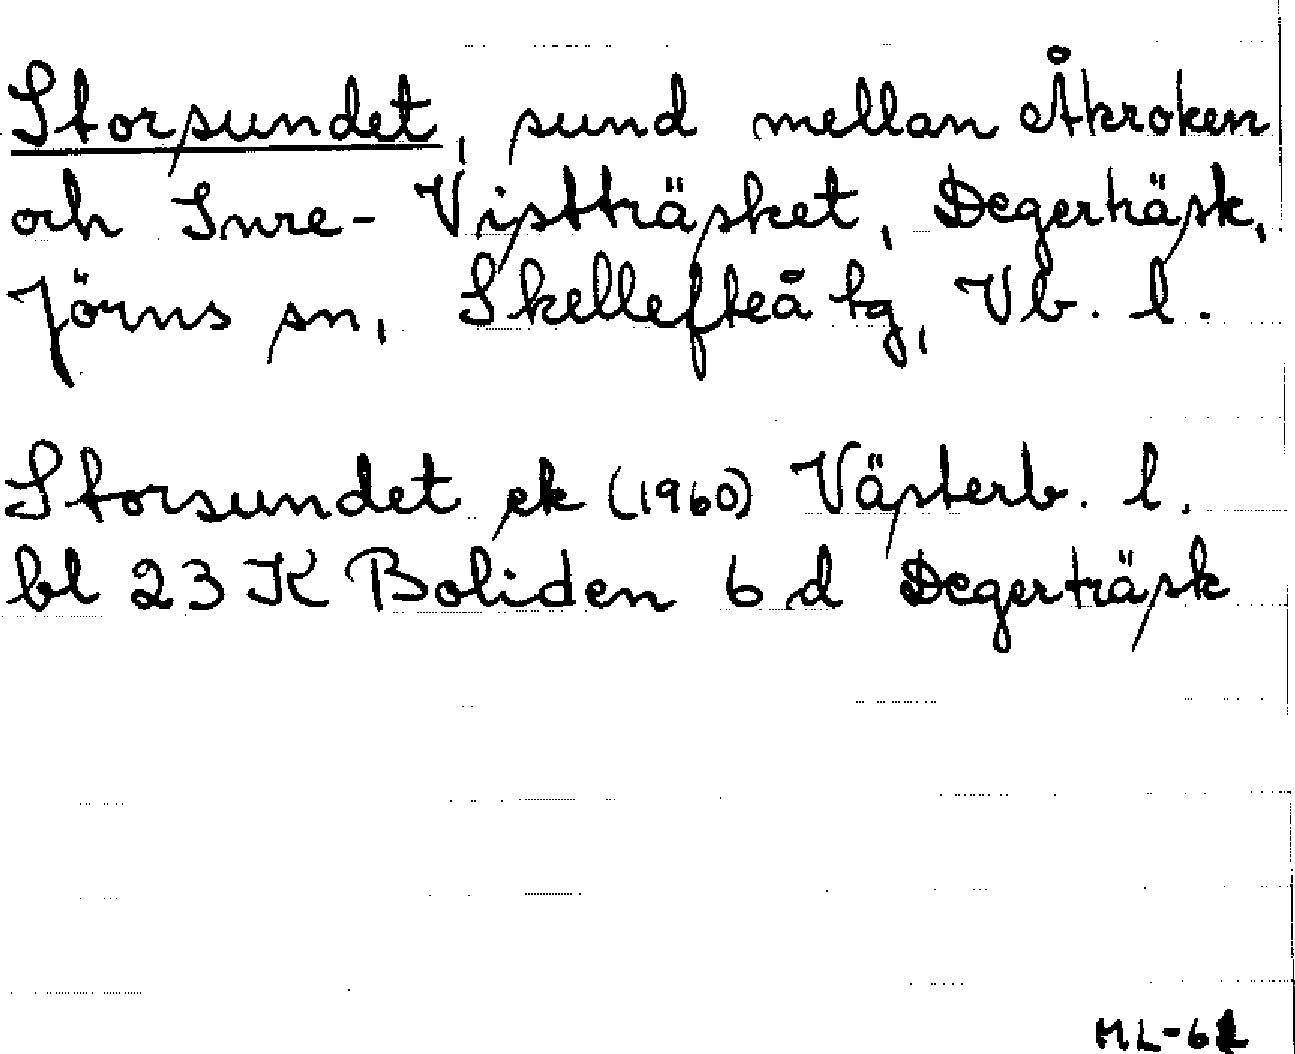 Storsundet, sund mellan Åkroken
och Inre-Vistträsket, Degerträsk,
Jörns sn, Skellefteå tg, Vb. l.
Storsundet ek (1960) Västerb. l.
bl 23 K Boliden 6 d Degerträsk